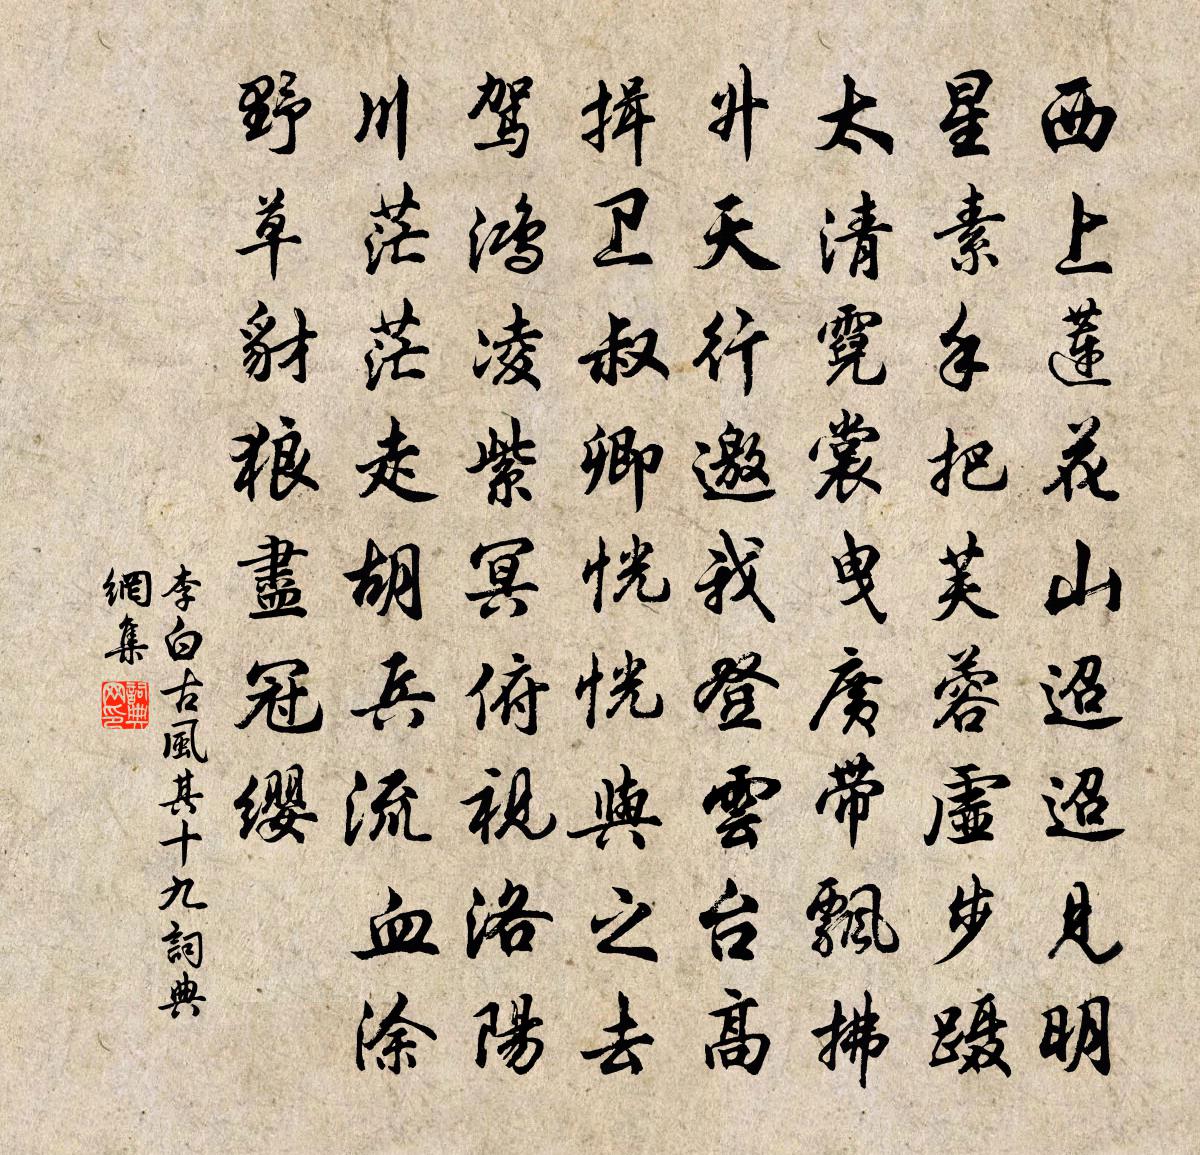 西上蓮花山迢迢見明
星素手把芙蓉虛步蹑
太清霓裳曳廣带飄拂
升天行邀我登雲台高
揖卫叔卿恍恍與之去
驾鸿凌紫冥俯視洛陽
川茫茫走胡兵流血涂
野草豺狼盡冠缨
李白古風其十九詞典
網集
詞典網印